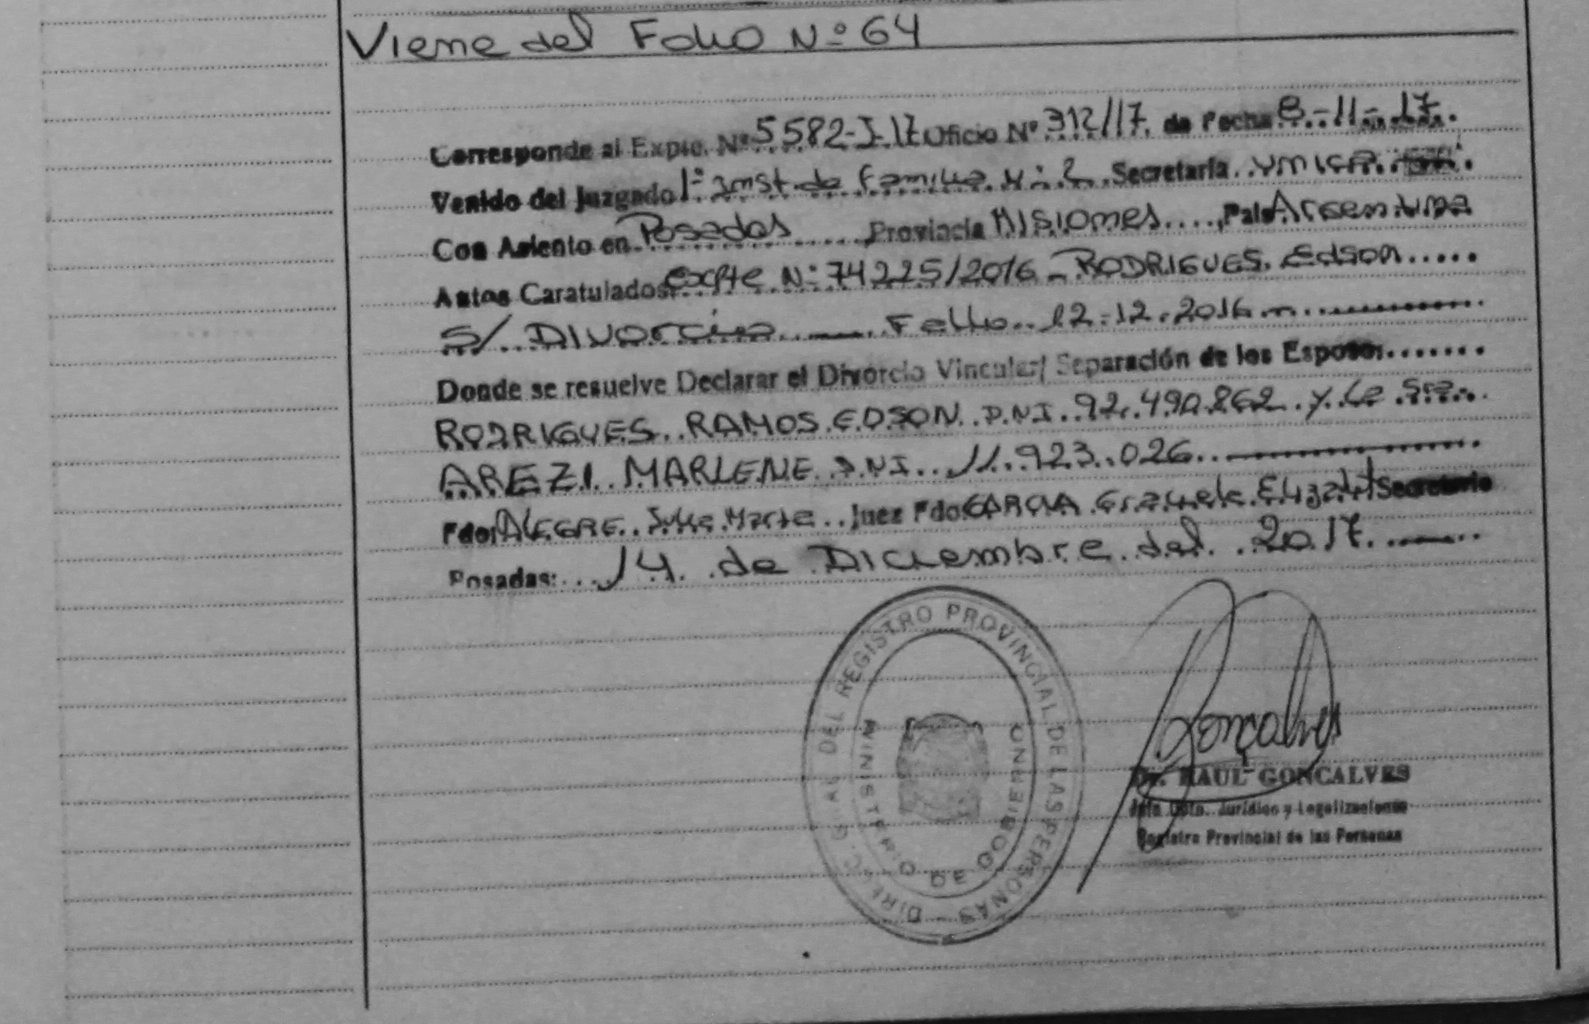 Viene del Folio Nº 64
Corresponde al Expte. Nº 5582-I-17 Oficio Nº 312/17 de Fecha 8-11-17.
Venido del Juzgado 1º inst. de Familia Nº 2 Secretaría unica
Con Asiento en Posadas Provincia Misiones País Argentina
Autos Caratulados: Expte Nº 74225/2016 - RODRIGUES, Edson
S/ DIVorcio Fallo 12-12-2016
Donde se resuelve Declarar el Divorcio Vincular/ Separación de los Esposos
RODRIGUES RAMOS EDSON D.N.I 92.490.862 y la Sra.
AREZI MARLENE D.N.I 11.923.026
Fdo: ALEGRE Juez Fdo GARCIA Graciela Elizabet Secretario
Posadas: 14 de Diciembre del 2017
DIREC. GRAL DEL REGISTRO PROVINCIAL DE LAS PERSONAS
MINISTERIO DE GOBIERNO
Gonçalves
Dr. RAUL GONCALVES
Jefe Dpto. Jurídico y Legalizaciones
Registro Provincial de las Personas